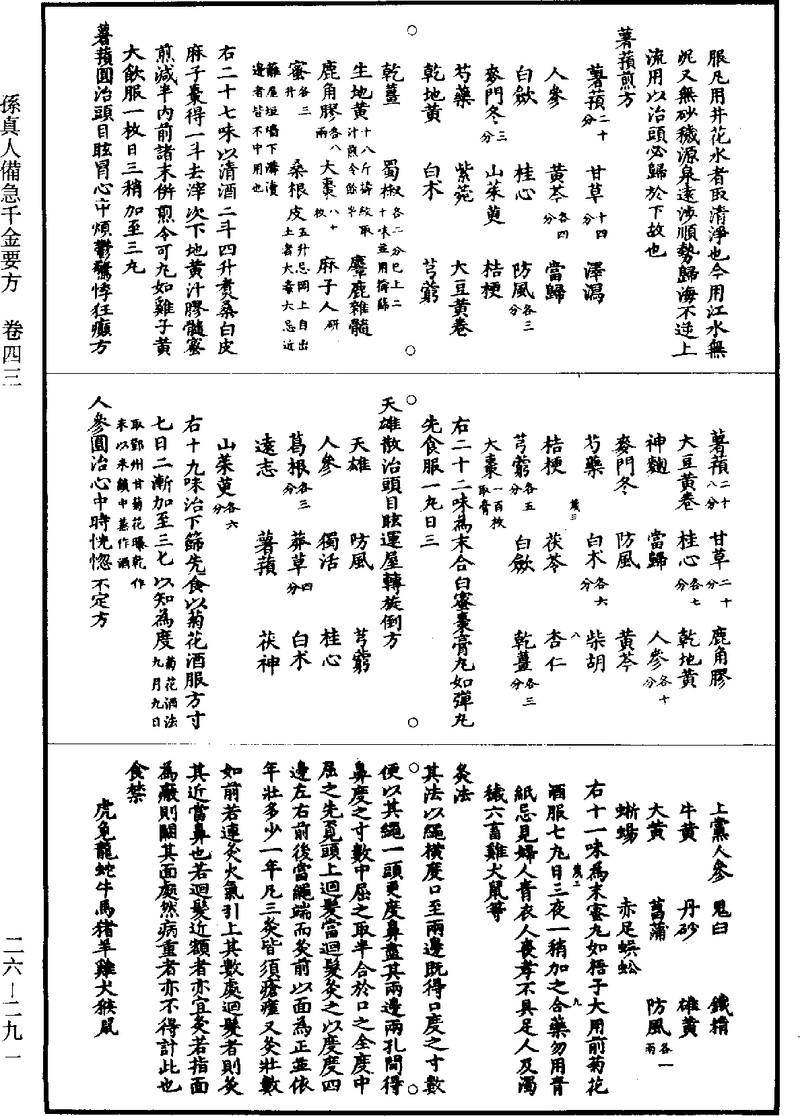 服凡用井花水者取清淨也今用江水無
泥又無砂穢源泉遠涉順勢歸海不逆上
流用以治頭必歸於下故也
薯蕷煎方
薯蕷二十分 甘草十四分 澤瀉
人參 黃芩各四分 當歸
白斂 桂心 防風各三分
麥門冬三分 山茱萸 桔梗
芍藥 紫菀 大豆黃卷
乾地黃 白朮 芎藭
乾薑 蜀椒各二分已上二十味並用擣篩
生地黃十八斤擣絞取汁煎令餘半 麞鹿雜髓
鹿角膠各八兩 大棗八十枚 麻子人研
蜜各三升 桑根皮五升忌岡上自出土者大毒大忌近
籬屋垣墻下溝瀆邊者皆不中用也
右二十七味以清酒二斗四升煮桑白皮
麻子棗得一斗去滓次下地黃汁膠髓蜜
煎減半內前諸末併煎令可丸如雞子黃
大飲服一枚日三稍加至三丸
薯蕷圓治頭目眩冒心中煩鬱驚悸狂癲方
薯蕷二十八分 甘草二十分 鹿角膠
大豆黃卷 桂心各七分 乾地黃
神麴 當歸 人參各十分
麥門冬 防風 黃芩
芍藥 白朮各六分 柴胡
桔梗 茯苓 杏仁
芎藭各五分 白斂 乾薑各三分
大棗一百枚取膏
右二十二味為末合白蜜棗膏丸如彈丸
先食服一丸日三
天雄散治頭目眩運屋轉旋倒方
天雄 防風 芎藭
人參 獨活 桂心
葛根各三分 莽草四分 白朮
遠志 薯蕷 茯神
山茱萸各六分
右十九味治下篩先食以菊花酒服方寸
七日二漸加至三七以知為度菊花酒法九月九日
取鄧州甘菊花曝乾作末以米饋中蒸作酒
人參圓治心中時恍惚不定方
上黨人參 鬼臼 鐵精
牛黃 丹砂 雄黃
大黃 菖蒲 防風各一兩
蜥蜴 赤足蜈蚣
右十一味為末蜜丸如梧子大用前菊花
酒服七丸日三夜一稍加之合藥勿用青
紙忌見婦人青衣人喪孝不具足人及濁
穢六畜雞犬鼠等
灸法
其法以繩橫度口至兩邊既得口度之寸數
便以其繩一頭更度鼻盡其兩邊兩孔間得
鼻度之寸數中屈之取半合於口之全度中
屈之先覓頭上迴髮當迴髮灸之以度度四
邊左右前後當繩端而灸前以面為正並依
年壯多少一年凡三灸皆須瘡瘥又灸壯數
如前若連灸火氣引上其數處迴髮者則灸
其近當鼻也若迴髮近額者亦宜灸若指面
為廠則闕其面處然病重者亦不得計此也
食禁
虎兔龍蛇牛馬豬羊雞犬猴鼠
孫真人備急千金要方 卷四三
二六—二九一